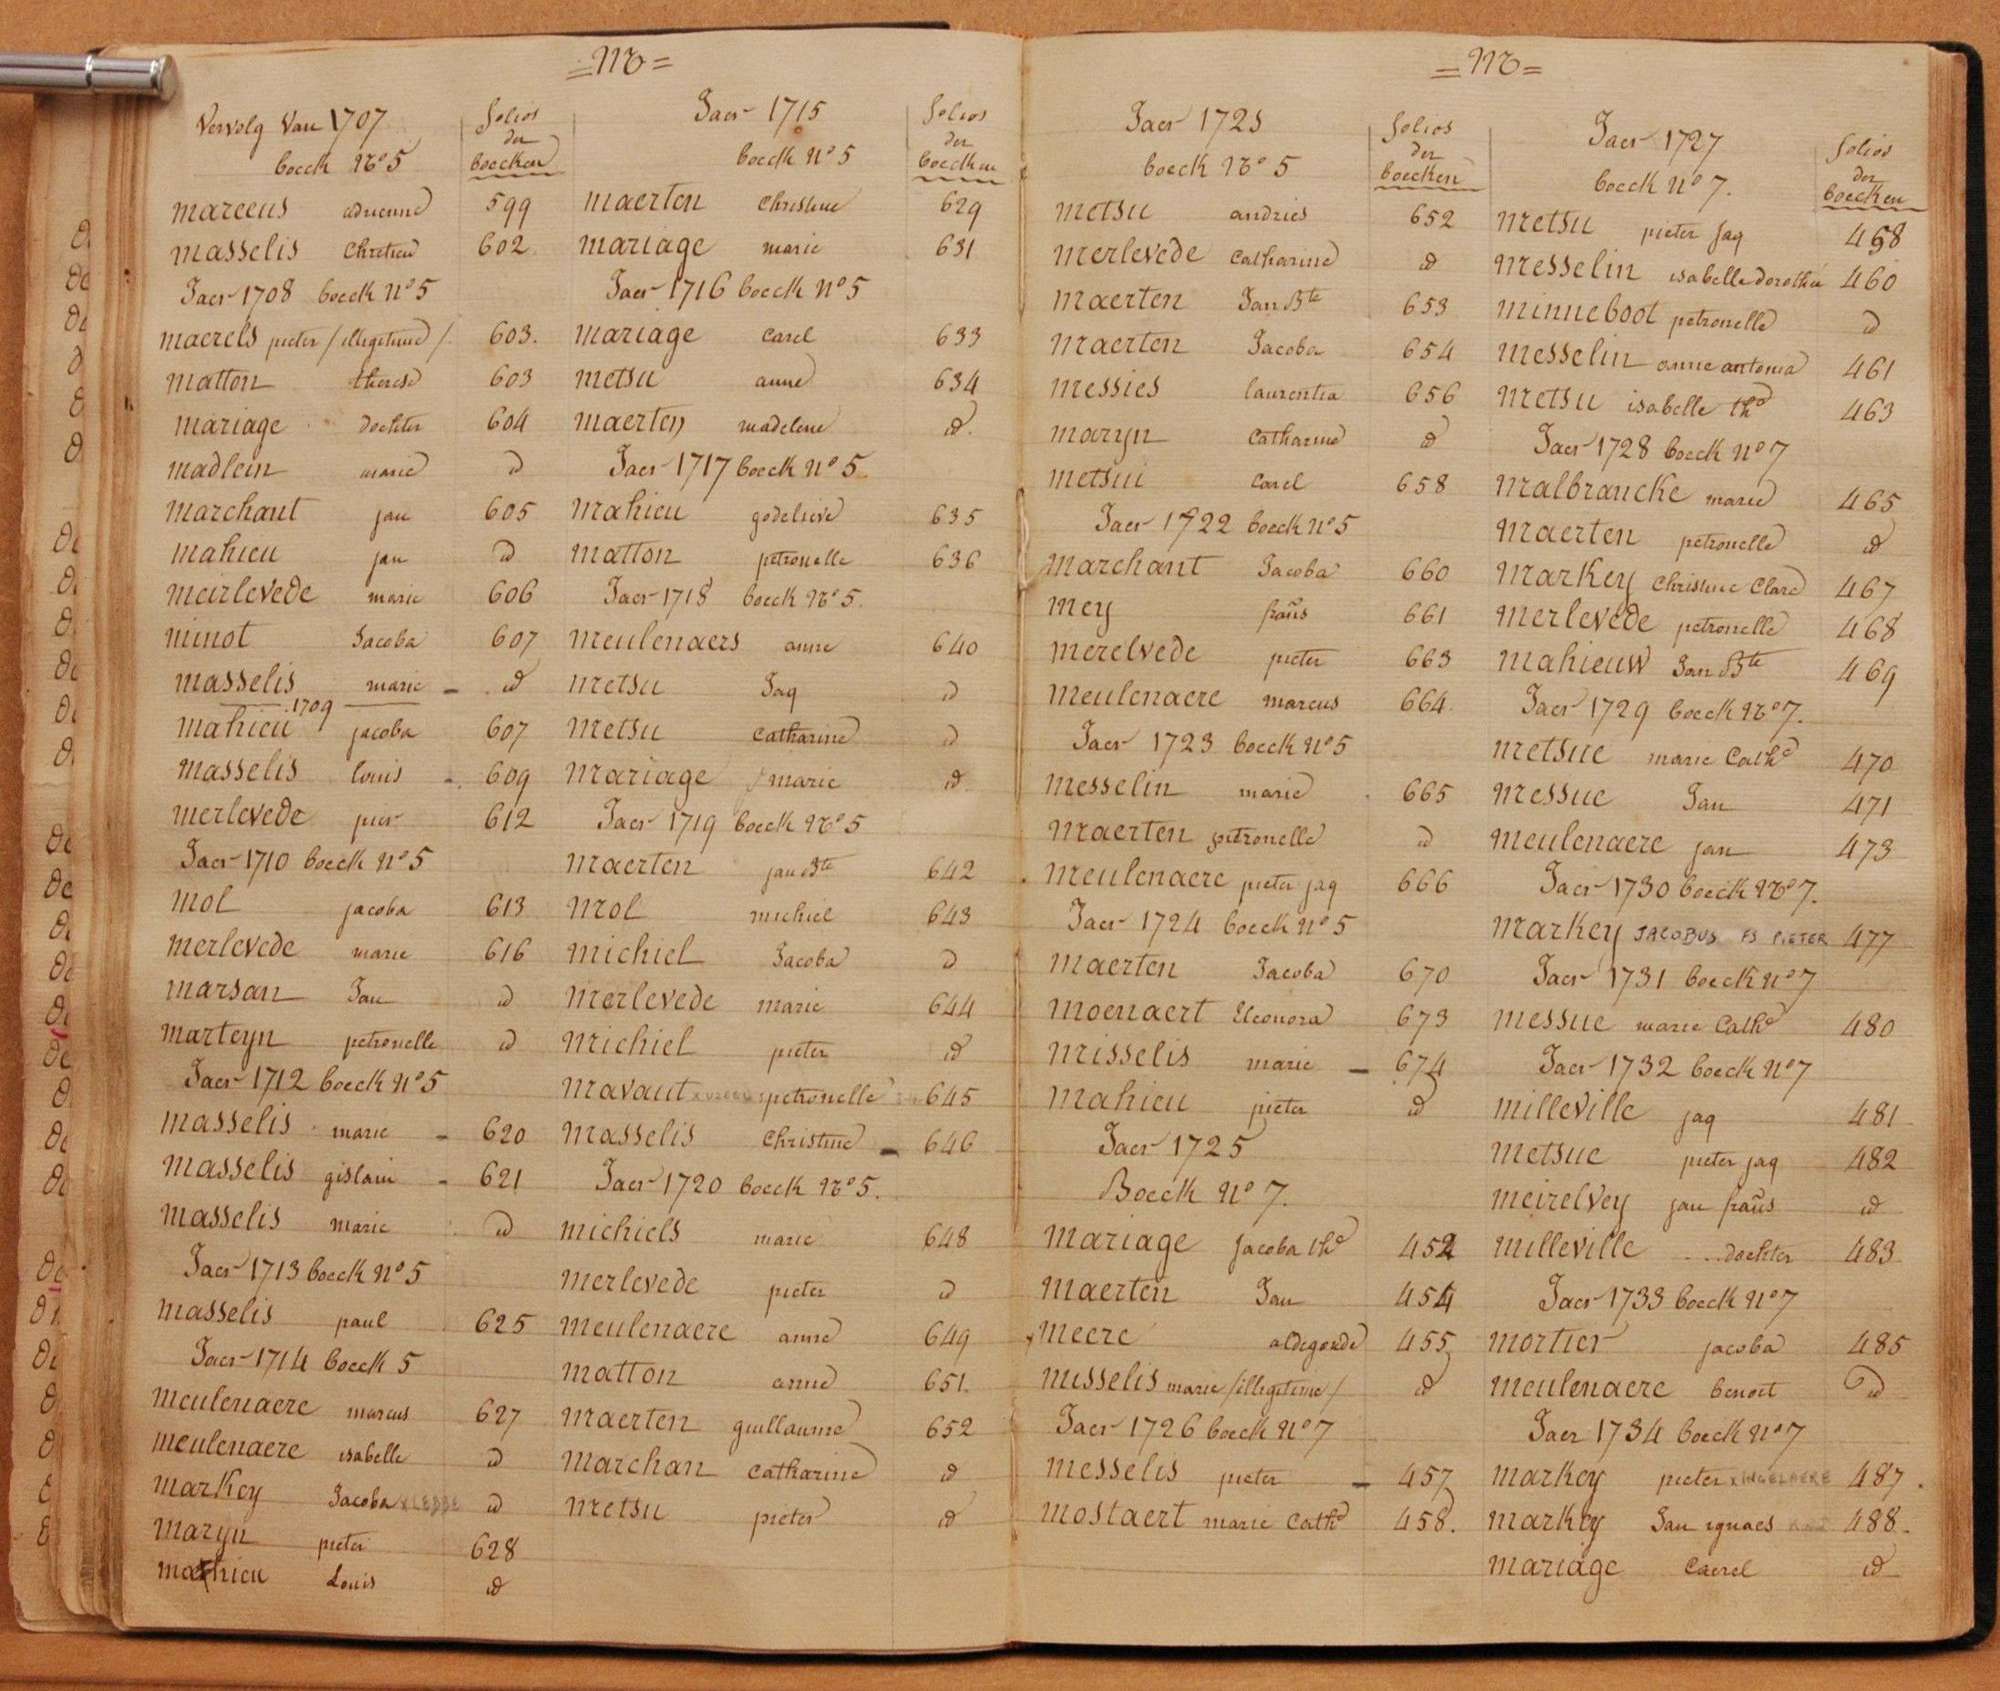 = M =
Vervolg Van 1707
boeck No 5
folios
der
boecken
mareeus adrienne 599
masselis Chretien 602
Jaer 1708 boeck No 5
maerels pieter / illegitime / 603.
matton therese 603
mariage dochter 604
madlein marie id
marchant jan 605
mahieu jan id
meirlevede marie 606
minot Jacoba 607
masselis marie - id
1709
mahieu jacoba 607
masselis louis - 609
merlevede pier 612
Jaer 1710 boeck No 5
mol jacoba 613
merlevede marie 616
marsan Jan id
marteyn petronelle id
Jaer 1712 boeck No 5
masselis marie - 620
masselis gislain - 621
masselis marie id
Jaer 1713 boeck No 5
masselis paul 625
Jaer 1714 boeck 5
meulenaere marcus 627
meulenaere isabelle id
markey Jacoba x LEDBE id
maryn pieter 628
mahieu Louis id
Jaer 1715
boeck No 5
folios
der
boecken
maerten Christine 629
mariage marie 631
Jaer 1716 boeck No 5
mariage Carel 633
metsu anne 634
maerten madelene id.
Jaer 1717 boeck No 5
mahieu godelieve 635
matton petronelle 636
Jaer 1718 boeck No 5.
meulenaers anne 640
metsu Jaq id
metsu Catharine id
mariage marie id
Jaer 1719 boeck No 5
maerten jan Bte 642
mol michiel 643
michiel Jacoba id
merlevede marie 644
michiel pieter id
mavaut petronelle 645
masselis Christine - 646
Jaer 1720 boeck No 5.
michiels marie 648
merlevede pieter id
meulenaere anne 649
matton anne 651.
maerten guillaume 652
marchan Catharine id
metsu pieter id
= M =
Jaer 1721
boeck No 5
folios
der
boecken
metsu andries 652
merlevede Catharine id
maerten Jan Bte 653
maerten Jacoba 654
messies laurentia 656
maryn Catharine id
metsui Carel 658
Jaer 1722 boeck No 5
marchant Jacoba 660
mey frañs 661
merelvede pieter 663
meulenaere marcus 664.
Jaer 1723 boeck No 5
messelin marie 665
maerten petronelle id
meulenaere pieter jaq 666
Jaer 1724 boeck No 5
maerten Jacoba 670
moenaert Eleonora 673
misselis marie - 674
mahieu pieter id
Jaer 1725
Boeck No 7.
mariage Jacoba the 452
maerten Jan 454
meere aldegonde 455
misselis marie / illegitime / id
Jaer 1726 boeck No 7
messelis pieter - 457
mostaert marie Cathe 458.
Jaer 1727
boeck No 7.
folios
der
boecken
metsu pieter Jaq 458
messelin isabelle dorothée 460
minneboot petronelle id
messelin anne antonia 461
metsu isabelle the 463
Jaer 1728 boeck No 7
malbrancke marie 465
maerten petronelle id
markey Christine Clare 467
merlevede petronelle 468
mahieuw Jan Bte 469
Jaer 1729 boeck No 7.
metsue marie Cathe 470
messue Jan 471
meulenaere jan 473
Jaer 1730 boeck No 7.
markey JACOBUS FS PIETER 477
Jaer 1731 boeck No 7
messue marie Cathe 480
Jaer 1732 boeck No 7
milleville jaq 481
metsue pieter jaq 482
meirelvey jan frañs id
milleville ... dochter 483
Jaer 1733 boeck No 7
mortier jacoba 485
meulenaere benoit id
Jaer 1734 boeck No 7
markey pieter x INGELAERE 487.
markey Jan ignaes 488.
mariage Caerel id